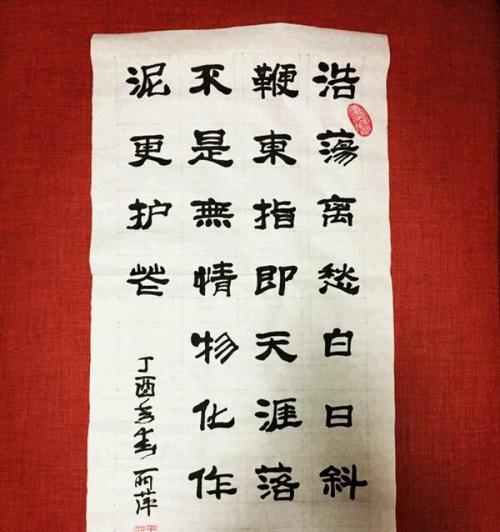 浩蕩离愁白日斜
鞭東指即天涯落
不是無情物化作
泥更护花
丁酉年春 丽萍